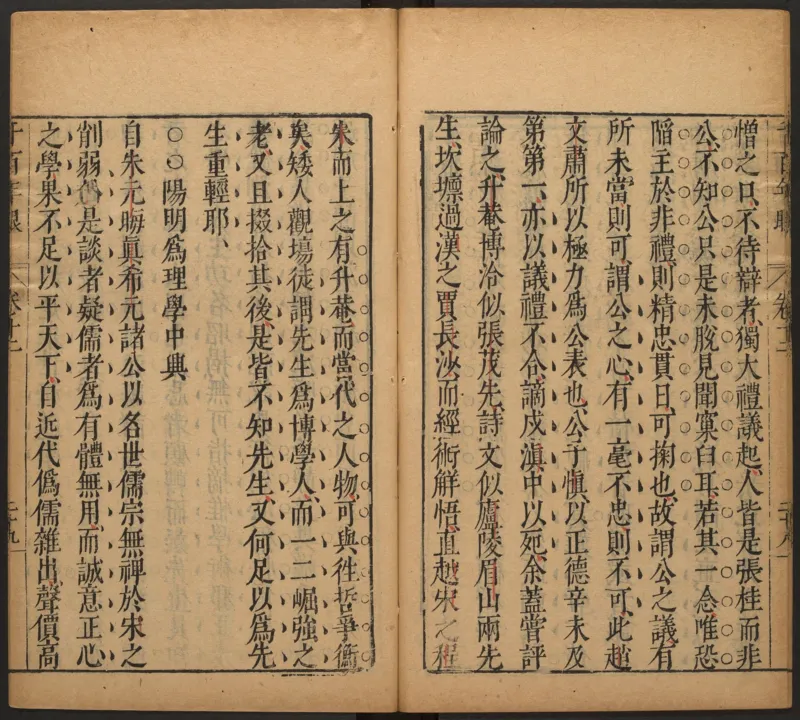 憎之口、不待辯者、獨大禮議起、人皆是張桂而非
公、不知公只是未脫見聞窠臼耳、若其一念唯恐
陷主於非禮、則精忠貫日、可掬也、故謂公之議、有
所未當則可、謂公之心、有一毫不忠則不可、此趙
文肅所以極力爲公表也、公子愼、以正德辛未及
第第一、亦以議禮不合、謫戍滇中以死、余蓋嘗評
論之、升菴博洽似張茂先、詩文似廬陵眉山兩先
生、坎壈過漢之賈長沙、而經術解悟、直越宋之程
朱而上之、有升菴而當代之人物、可與徃哲爭衡
矣、矮人觀塲、徒謂先生爲博學人、而一二崛強之
老、又且掇拾其後、是皆不知先生、又何足以爲先
生重輕耶、
○○陽明爲理學中興
自朱元晦眞希元諸公以名世儒宗、無裨於宋之
削弱、於是談者疑儒者爲有體無用、而誠意正心
之學、果不足以平天下、自近代僞儒雜出、聲價高
千百年眼 卷十二 二十九